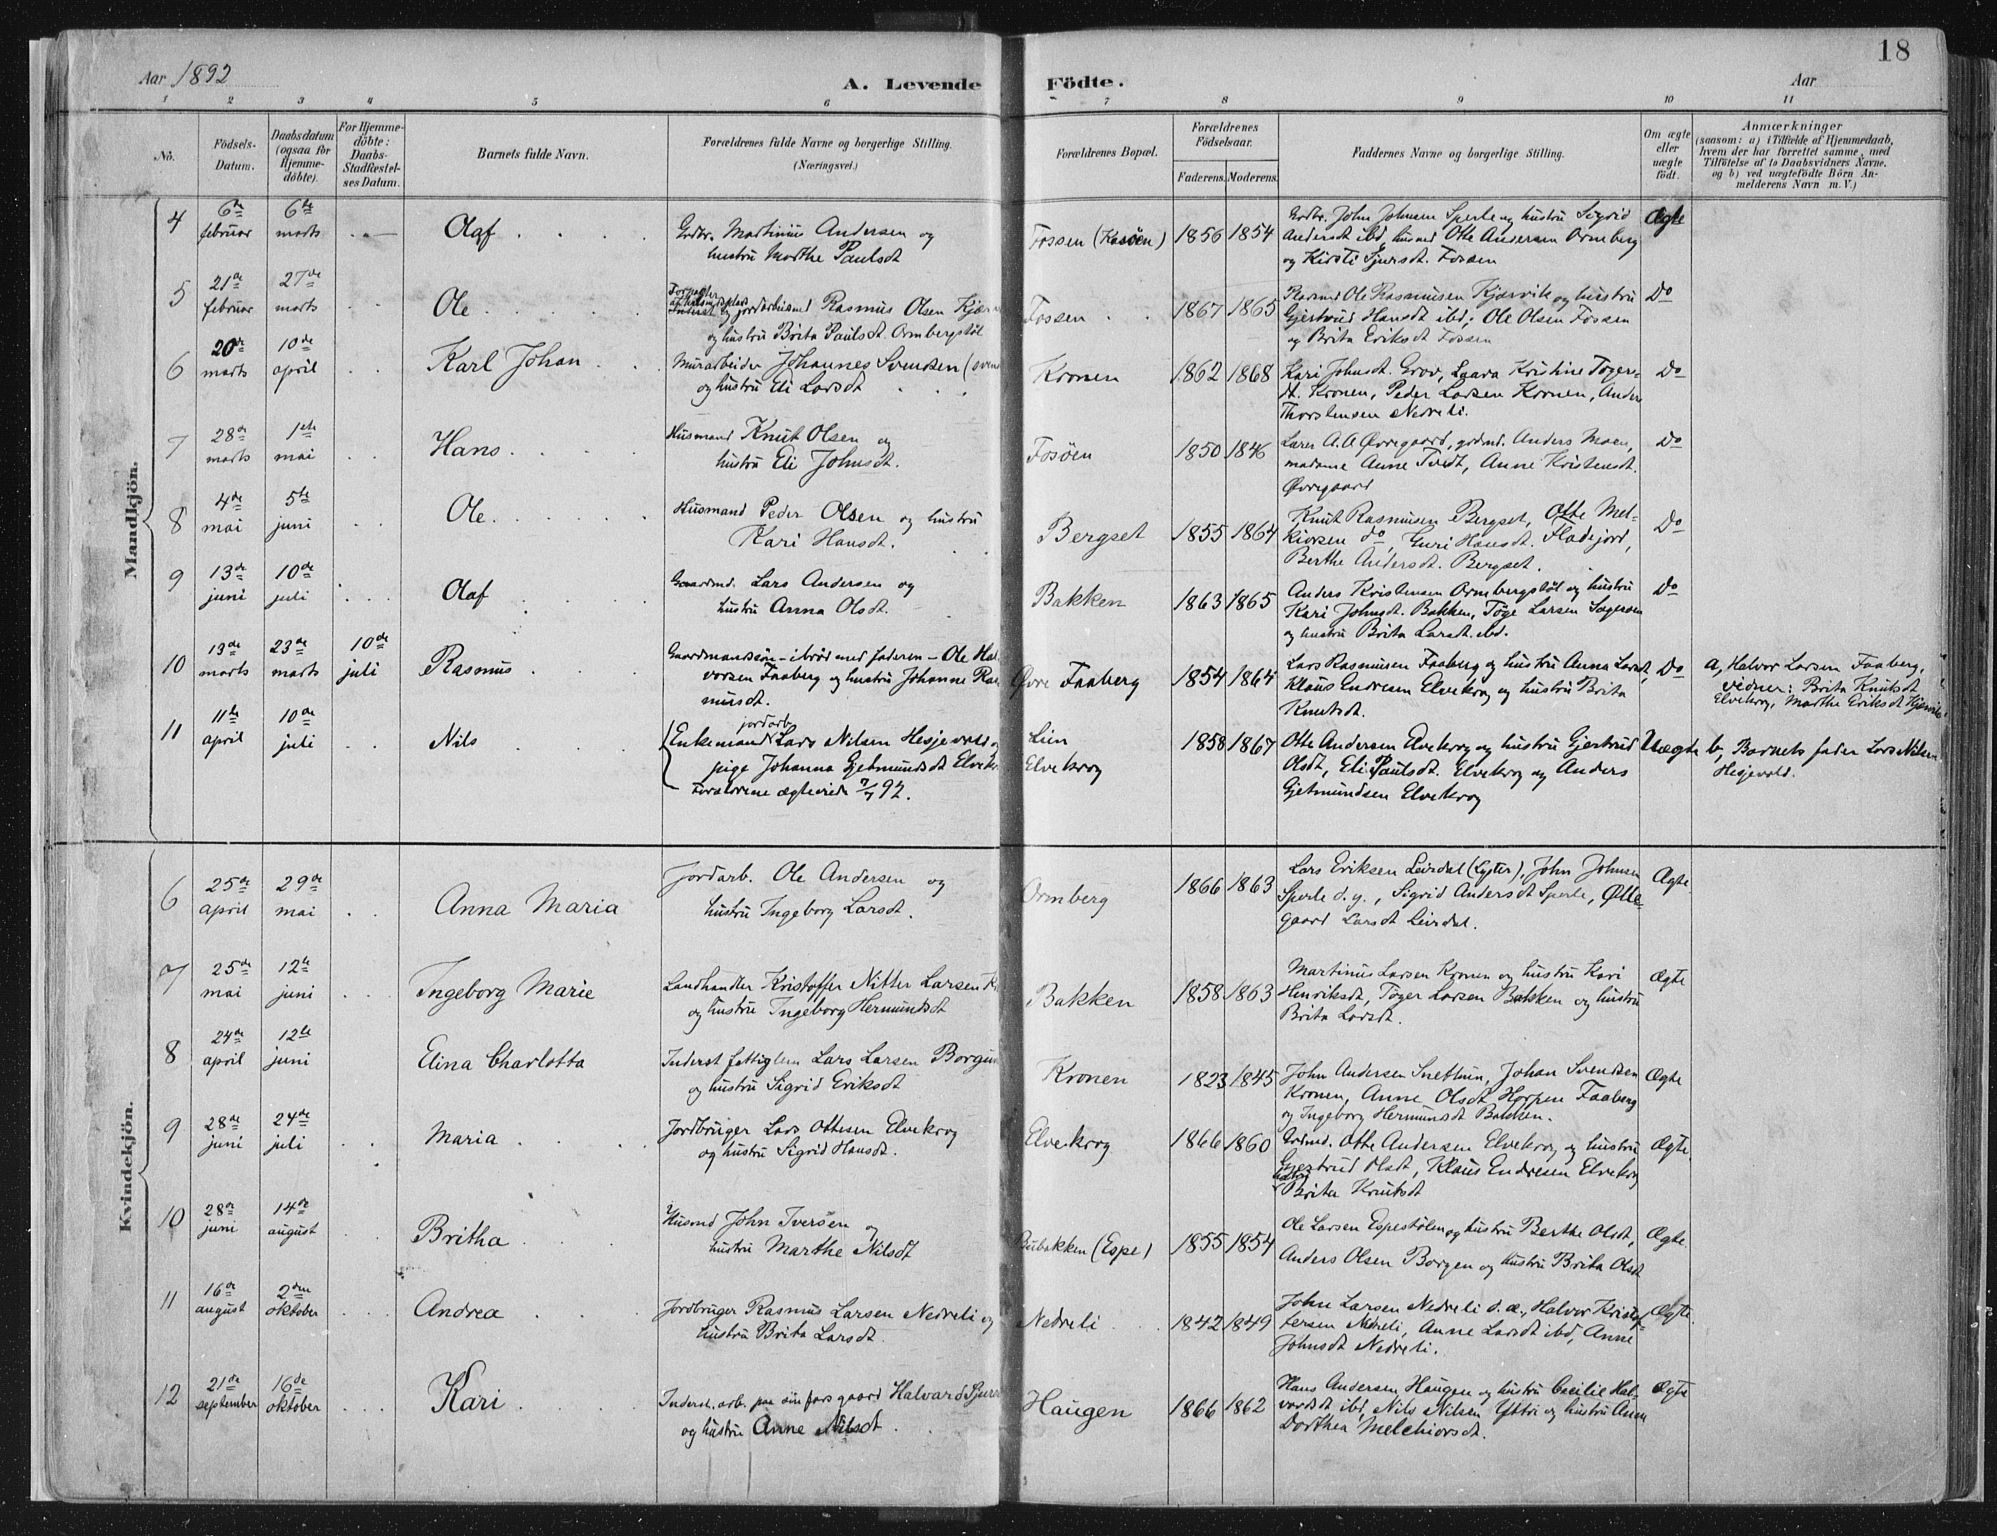 18
Aar 1892
A. Levende Födte.
Aar
1 2 3 4 5 6 7 8 9 10 11
No.
Födsels-Datum.
Daabsdatum (ogsaa for Hjemme-döbte).
For Hjemme-döbte: Daabs-Stadfæstel-ses Datum.
Barnets fulde Navn.
Forældrenes fulde Navne og borgerlige Stilling. (Næringsvei.)
Forældrenes Bopæl.
Forældrenes Födselsaar.
Faderens. Moderens.
Faddernes Navne og borgerlige Stilling.
Om ægte eller uægte födt.
Anmærkninger
(saasom: a) i Tilfælde af Hjemmedaab, hvem der har forrettet samme, med Tilföielse af to Daabsvidners Navne, og b) ved uægtefödte Börn An-melderens Navn m. V.)
Mandkjön.
4 6te februar 6te marts Olaf Grdbr. Martinius Andersen og
hustru Marthe Paulsdt
Fossen (Kasöen) 1856 1854
Grdbr. John Johnsen Sperle og hustru Sigrid
Andersdt ibd, husmd Otte Andersen Ormberg
og Kirsti Sjursdt. Fossen
Ægte
5 21de februar 27de marts Ole
og jordarb. Rasmus Olsen
og hustru Brita Paulsdt. Ormbergstöl
Fossen 1867 1865
Ole Rasmusen Kjærvik og hustru
Gjertrud Hansdt ibd; Ole Olsen Fossen
og Brita Eriksdt Fossen
Do
6 20de marts 10de april Karl Johan Murarbeider Johannes Svendsen
og hustru Eli Larsdt
Kronen 1862 1868
Kari Johnsdt. Grov, Laura Kristine Töger-
dt. Kronen, Peder Larsen Kronen, Anders
Thorstensen Nedreli.
Do
7 28de marts 1ste mai Hans Husmand Knut Olsen og
hustru Eli Johnsdt.
Fosöen 1850 1846
Lærer A. A Övregaard, grdmd. Anders Moen,
madame Anne Tvedt, Anne Kristensdt.
Övregaard
Do
8 4de mai 5te juni Ole Husmand Peder Olsen og hustru
Kari Hansdt.
Bergset 1855 1864
Knut Rasmusen Bergset, Otte Mel-
kiorsen do, Guri Hansdt. Fladejord,
Berthe Andersdt. Bergset.
Do
9 13de juni 10de juli Olaf Gaardmd. Lars Andersen og
hustru Anna Olsdt.
Bakken 1863 1865
Anders Kristensen Ormbergstöl og hustru
Kari Johnsdt. Bakken, Töge Larsen
og hustru Brita Larsdt. ibd.
Do
10 13de marts 23de marts 10de juli Rasmus Gaardmandssön – i bröd med faderen – Ole Hal-
vorsen Faaberg og hustru Johanne Ras-
musdt.
Övre Faaberg 1854 1864
Lars Rasmusen Faaberg og hustru Anna Larsdt,
Klaus Endresen Elvekrog og hustru Brita
Knutsdt.
Do
a, Halvor Larsen Faaberg,
vidner: Brita Knutsdt
Elvekrog, Marthe Eriksdt
11 11te april 10de juli Nils Enkemand jordarb. Lars Nilsen Hesjevold og
pige Johanna Gjetmundsdt Elvekrog
Forældrene ægteviede 7/7 92.
Lien
Elvekrog
1858 1867
Otte Andersen Elvekrog og hustru Gjertrud
Olsdt, Eli Paulsdt. Elvekrog og Anders
Gjetmundsen Elvekrog
Uægte
b, Barnets fader Lars Nilsen
Hesjevold.
Kvindekjön.
6 25de april 29de mai Anna Maria Jordarb. Ole Andersen og
hustru Ingeborg Larsdt.
Ormberg 1866 1863
Lars Eriksen Leirdal (Lyster), John Johnsen
Sperle d. y., Sigrid Andersdt Sperle,
gaard Larsdt Leirdal.
Ægte
7 25de mai 12te juni Ingeborg Marie Landhandler Kristoffer Nitter Larsen
og hustru Ingeborg Hermundsdt
Bakken 1858 1863
Martinus Larsen Kronen og hustru Kari
Henriksdt, Töger Larsen Bakken og hustru
Brita Larsdt.
Ægte
8 24de april 12te juni Elina Charlotta Inderst fattiglem Lars Larsen Borgund
og hustru Sigrid Eriksdt
Kronen 1823 1845
John Andersen Snethun, Johan Svendsen
Kronen, Anne Olsdt Horpen Faaberg
og Ingeborg Hermundsdt Bakken.
Ægte
9 28de juni 24de juli Maria Jordbruger Lars Ottesen Elvekrog
og hustru Sigrid Hansdt.
Elvekrog 1866 1860
Grdmd. Otte Andersen Elvekrog og hustru
Gjertrud Olsdt, Klaus Endresen Elvekrog
hustru Brita Knutsdt
Ægte.
10 28de juni 14de august Britha Husmd John Iversen og
hustru Marthe Nilsdt
Bubakken (Espe) 1855 1854
Ole Larsen Espestölen og hustru Berthe Olsdt,
Anders Olsen Borgen og hustru Brita Olsdt
Ægte
11 16de august 2den oktober Andrea Jordbruger Rasmus Larsen Nedreli og
hustru Brita Larsdt.
Nedreli 1842 1849
John Larsen Nedreli d. æ., Halvor Kristof-
fersen Nedreli, Anne Larsdt ibd, Anne
Johnsdt Nedreli.
Ægte.
12 21de september 16de oktober Kari Inderst. arb. paa sin fars gaard Halvard
og hustru Anne Nilsdt
Haugen 1866 1862
Hans Andersen Haugen og hustru Cecilie Hal-
vardsdt ibd, Nils Nilsen Yttri og hustru Anna
Dorthea Melchiorsdt.
Ægte